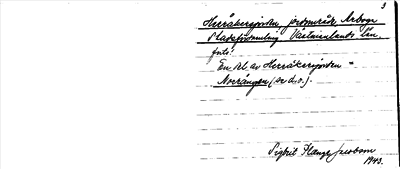 3
Herråkersjorden, jordområde, Arboga
Stadsförsamling Västmanlands län.
En del av Herråkersjorden =
Norrängen (se d.o.).
Sigbrit Plange Jacobson
1943.